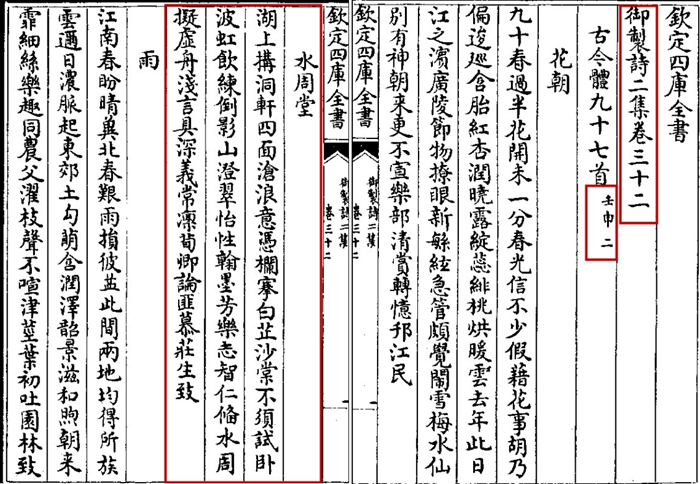 欽定四庫全書
御製詩二集卷三十二
古今體九十七首 壬申 二
花朝
九十春過半花開未一分春光信不少假藉花事胡乃
偏逡巡含胎紅杏潤曉露綻蕊緋桃烘暖雲去年此日
江之濱廣陵節物撩眼新繁絃急管頗覺鬧雪梅水仙
別有神朝來更不宣樂部清賞轉憶邗江民
欽定四庫全書
御製詩二集
卷三十二
欽定四庫全書
御製詩二集
卷三十二
水周堂
湖上搆洞軒四面滄浪意憑欄搴白芷沙棠不須試卧
波虹飲練倒影山澄翠怡性翰墨芳樂志智仁備水周
擬虛舟淺言具深義常凜荀卿論匪慕莊生致
雨
江南春盼晴冀北春艱雨損彼益此間兩地均得所族
雲邇日濃脈起東郊土勾萌含潤澤韶景滋和煦朝來
霏細絲樂趣同農父濯枝聲不喧津莖葉初吐園林致